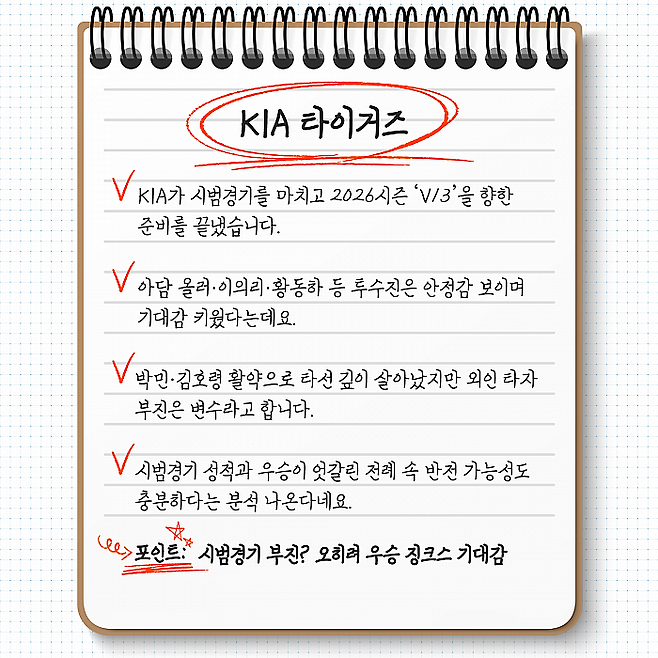 KIA 타이거즈
KIA가 시범경기를 마치고 2026시즌 ‘V13’을 향한
준비를 끝냈습니다.
아담 올러·이의리·황동하 등 투수진은 안정감 보이며
기대감 키웠다는데요.
박민·김호령 활약으로 타선 깊이 살아났지만 외인 타자
부진은 변수라고 합니다.
시범경기 성적과 우승이 엇갈린 전례 속 반전 가능성도
충분하다는 분석 나온다네요.
포인트: 시범경기 부진? 오히려 우승 징크스 기대감